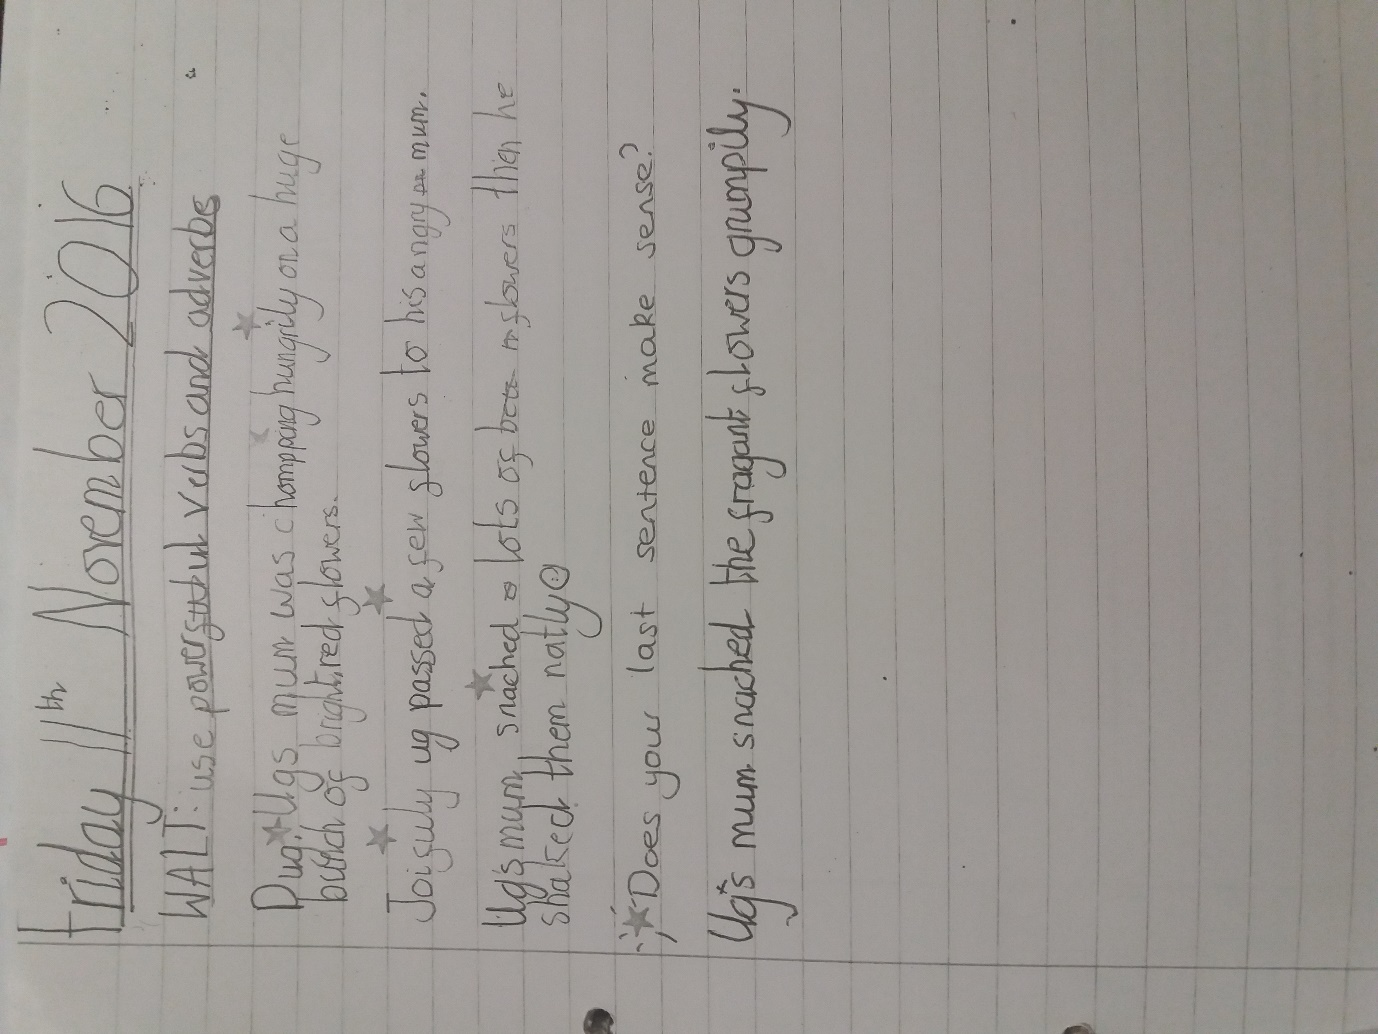 Friday 11th November 2016
WALT: use powerful verbs and adverbs
Dug, Ugs mum was chompping hungrily on a huge
bunch of bright, red flowers.
Joifuly ug passed a few flowers to his angry mum.
Ug's mum snached lots of flowers then he
shaked them natly
Does your last sentence make sense?
Ug's mum snached the fragant flowers grumpily.